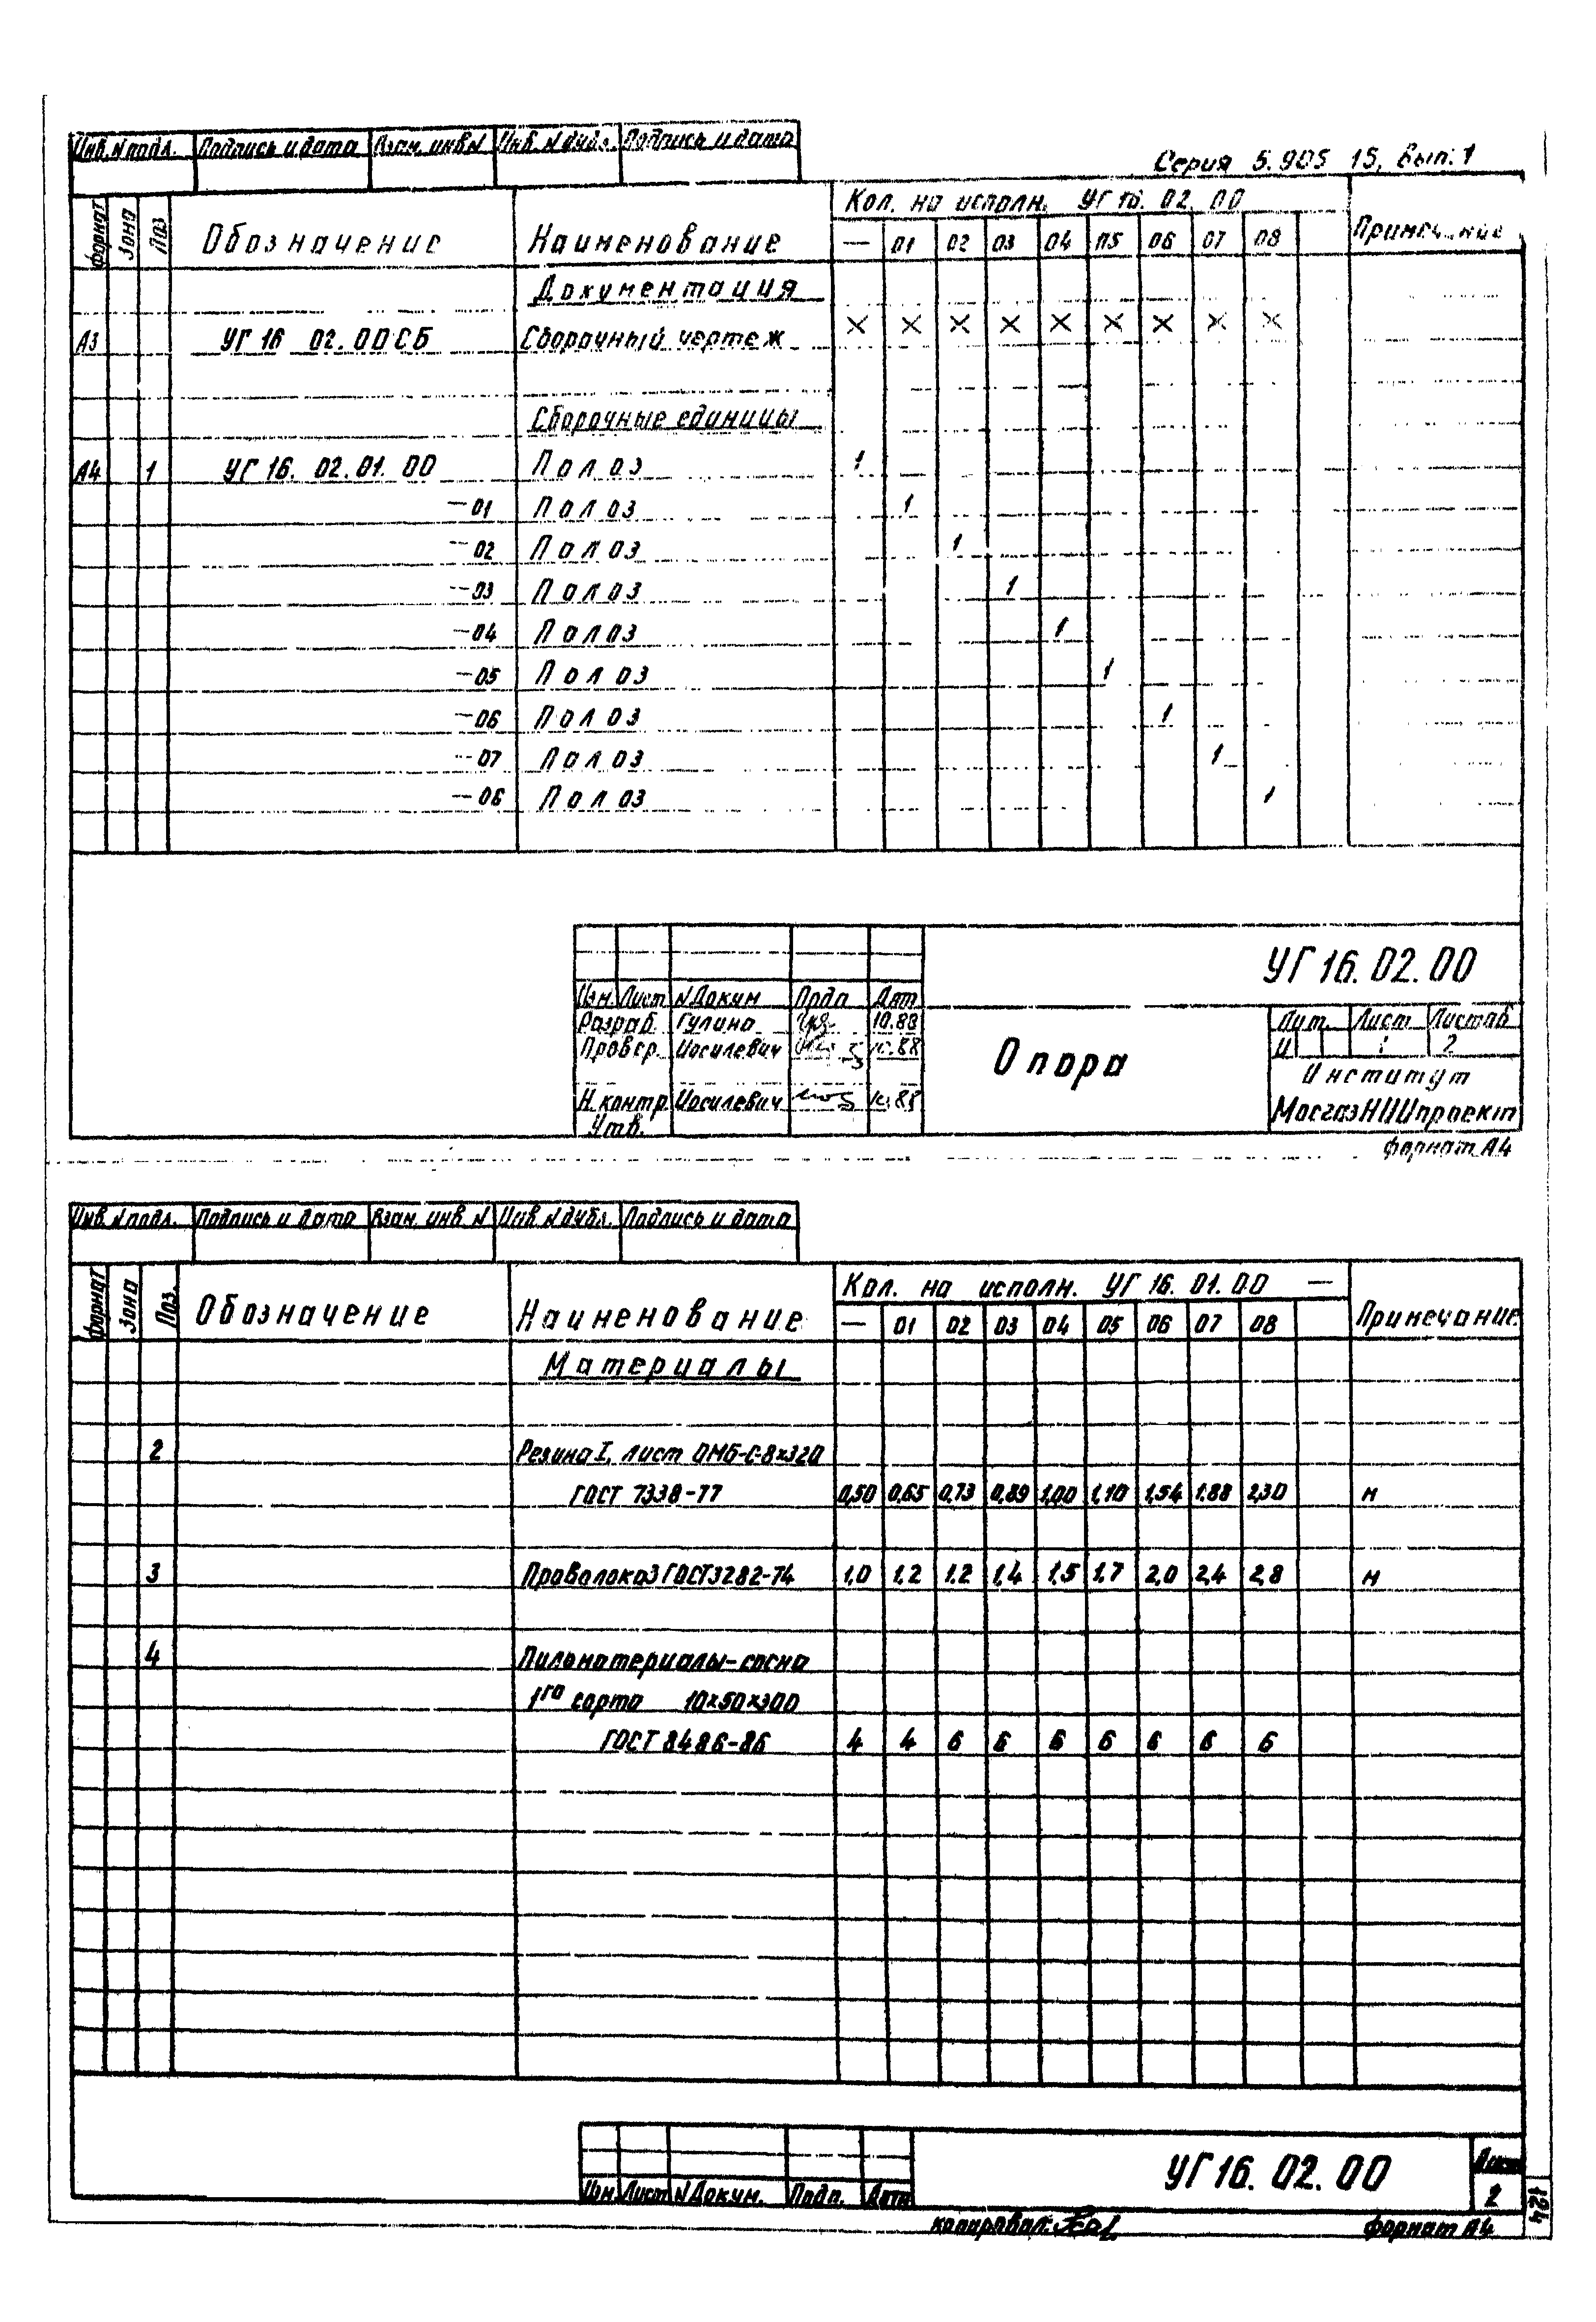 Инв. N подл. Подпись и дата Взам. инв N Инв. N дубл. Подпись и дата
Серия 5.905 15, Вып. 1
формат Зона Поз Обозначение Наименование Кол. на исполн. УГ 16. 02. 00 Примечание
— 01 02 03 04 05 06 07 08
Документация
А3 УГ 16 02.00 СБ Сборочный чертеж X X X X X X X X X
Сборочные единицы
А4 1 УГ 16. 02. 01. 00 Полоз 1
—01 Полоз 1
—02 Полоз 1
—03 Полоз 1
—04 Полоз 1
—05 Полоз 1
—06 Полоз 1
—07 Полоз 1
—08 Полоз 1
УГ 16. 02. 00
Изм. Лист N Докум Подп Дат
Разраб. Гулина 10.88
Провер. Иосилевич 10.88
Н. контр Иосилевич 10.88
Утв.
Опора
Лит. Лист Листов
И 1 2
Институт
МосгазНИИпроект
формат А4
Инв. N подл. Подпись и дата Взам. инв N Инв N дубл. Подпись и дата
формат Зона Поз. Обозначение Наименование Кол. на исполн. УГ 16. 01. 00 — Примечание
— 01 02 03 04 05 06 07 08
Материалы
2 Резина I, лист ОМБ-С-8×320
ГОСТ 7338-77 0,50 0,65 0,73 0,89 1,00 1,10 1,54 1.88 2,30 м
3 Проволока 3 ГОСТ 3282-74 1,0 1,2 1.2 1,4 1,5 1.7 2,0 2,4 2,8 м
4 Пиломатериалы-сосна
1го сорта 10×50×300
ГОСТ 8486-86 4 4 6 6 6 6 6 6 6
Изм. Лист N Докум. Подп. Дата
УГ 16. 02. 00
Лист
2
копировал:
формат А4
124